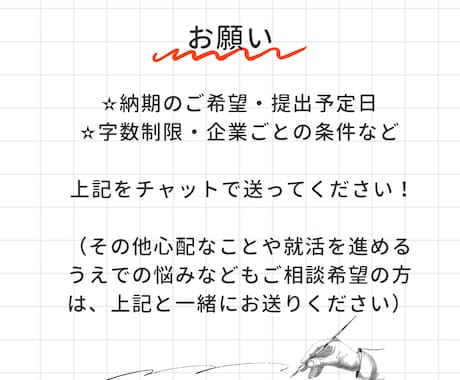 お願い
☆納期のご希望・提出予定日
☆字数制限・企業ごとの条件など
上記をチャットで送ってください！
（その他心配なことや就活を進める
うえでの悩みなどもご相談希望の方
は、上記と一緒にお送りください）